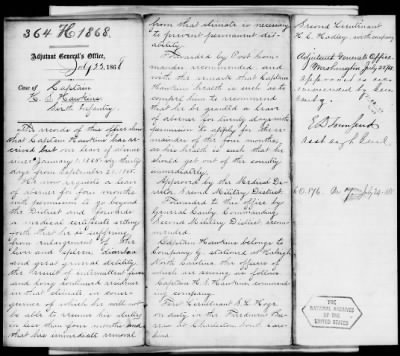 364 H 1868.
Adjutant General's Office,
July 23, 1868
Case of Captain
H. S. Hawkins
Sixth Infantry
The records of this office show
that Captain Hawkins has re-
ceived but one leave of absence
since January 1, 1865 viz thirty
days from September 21, 1865.
He now requests a leave
of absence for four months
with permission to go beyond
the District and forwards
a medical certificate setting
forth that he is suffering
from enlargement of the
liver and spleen, diarrhea
and great general debility,
the result of intermittent fever
and long continued residence
in that climate in conse-
quence of which he will not
be able to resume his duties
in less than four months and
that his immediate removal
from that climate is necessary
to prevent permanent dis-
ability.
Forwarded by Post Com-
mander recommended and
with the remark that Captain
Hawkins health is such as to
compel him to recommend
that he be granted a leave
of absence for twenty days with
permission to apply for the re-
mainder of the four months,
as his health is such that he
should get out of the country
immediately.
Approved by the Medical Direc-
tor Second Military District.
Forwarded to this office by
General Canby Commanding
Second Military District recom-
mended.
Captain Hawkins belongs to
Company stationed at Raleigh
North Carolina the officers of
which are serving as follows
Captain H. S. Hawkins, command-
ing company.
First Lieutenant
on duty in the Freedmen's Bu-
reau at Charleston South Caro-
lina.
Second Lieutenant
with company
Adjutant General's Office
Washington July 23/68
approved as recom-
mended by Gen
Canby.
E D Townsend
Asst Adjt Genl.
July 24, 68
THE
NATIONAL ARCHIVES
OF THE
UNITED STATES